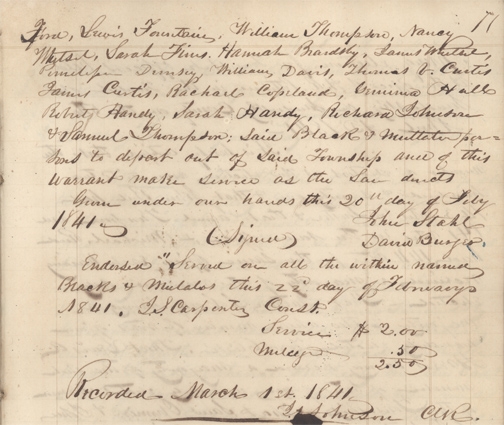 71
Ford, Lewis Fountain, William Thompson, Nancy
Whetsel, Sarah Fins. Hannah Brandsby, James Whetsel,
Penelope Dempsey William, Davis, Thomas V. Curtis
James Curtis, Rachael Copeland, Viminia Hall
Robert Handy, Sarah Handy, Richard Johnson
& Samuel Thompson; said Black & Mullato per-
sons to depart out of said Township and of this
warrant make service as the Law ducts
Given under our hands this 20th day of Feby
1841. John Stahl
(Signed) David Burger
Endorsed "Served on all the within named
Blacks & Mulatos this 22d day of February
1841. J.S. Carpenter Const.
Service $ 2.00
Mileage .50
2.50
Recorded March 1st. 1841.
Johnson Clk.